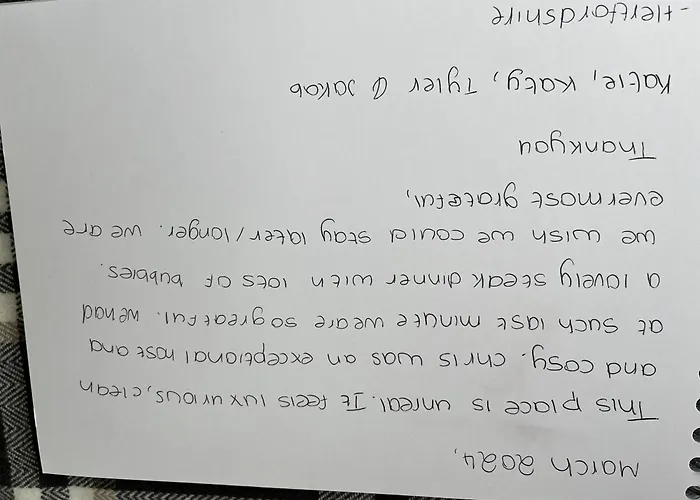 March 2024,
This place is unreal. It feels luxurious, clean
and cosy. Chris was an exceptional host and
at such last minute we are so greatful. We had
a lovely steak dinner with lots of bubbles.
We wish we could stay later/longer. We are
evermost grateful,
Thankyou
Katie, Katy, Tyler & Jakob
- Hertfordshire